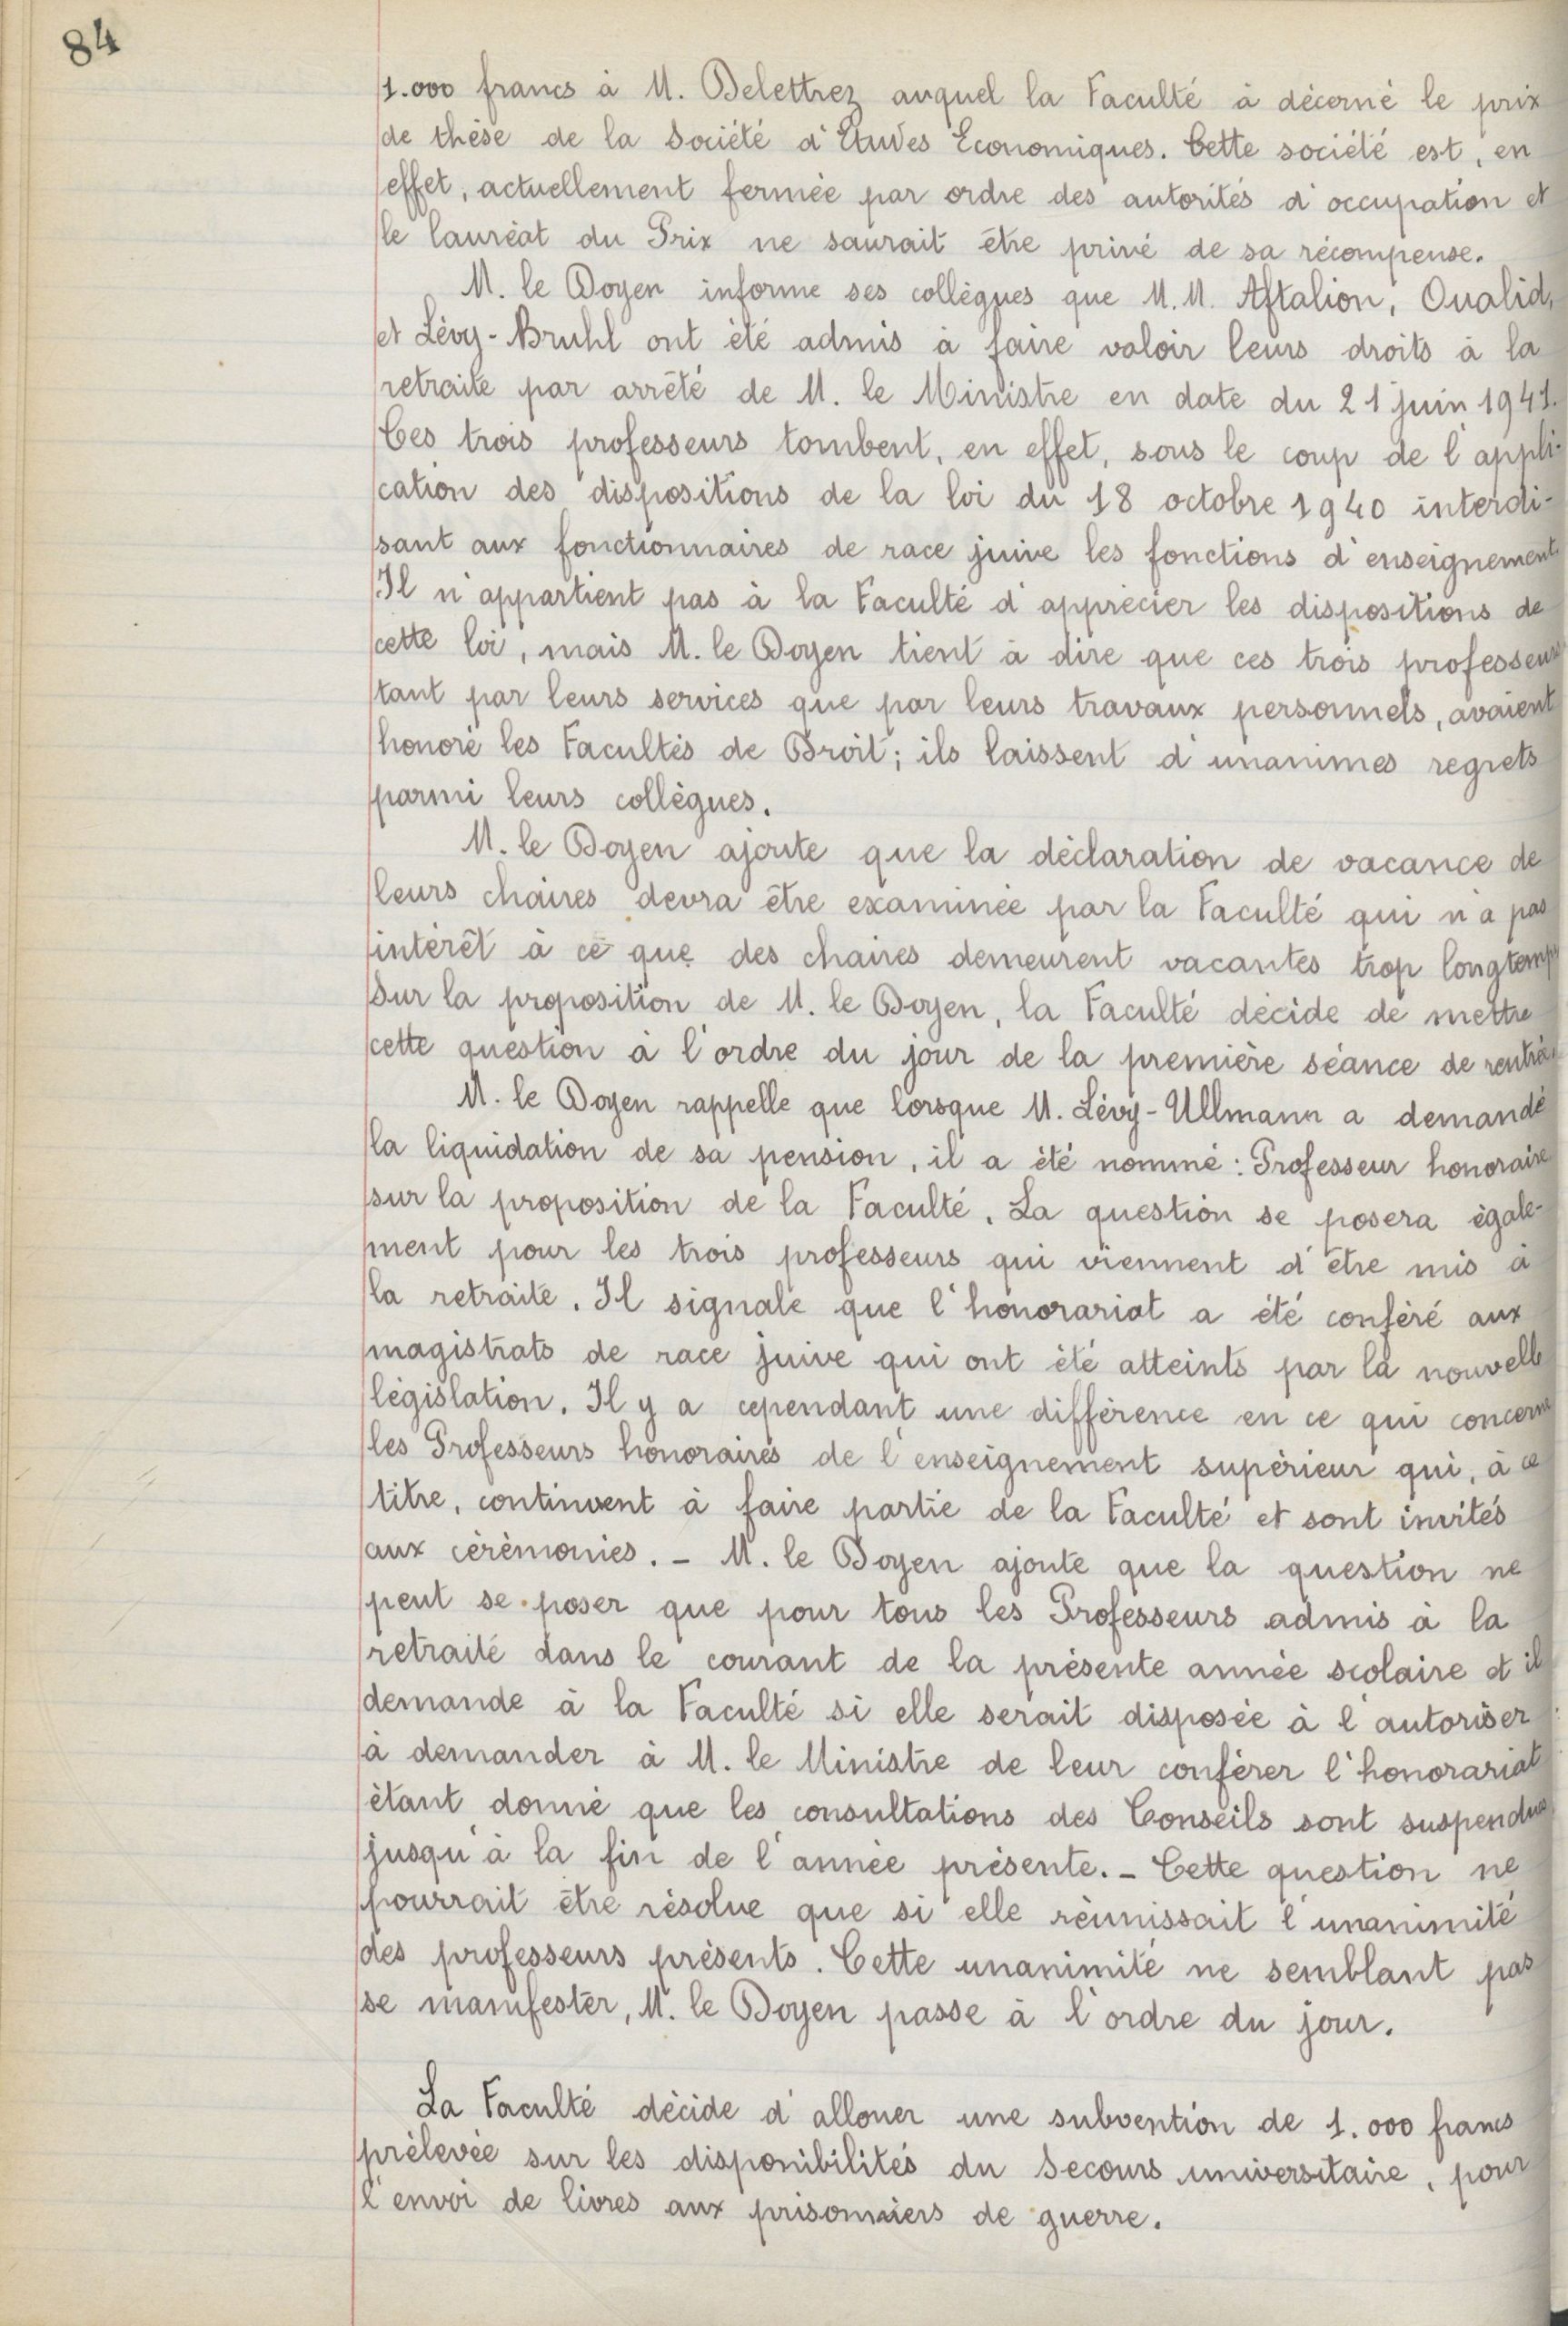 84
1.000 francs à M. Delettrez auquel la Faculté à décerné le prix
de thèse de la Société d'Etudes Economiques. Cette société est, en
effet, actuellement fermée par ordre des autorités d'occupation et
le lauréat du Prix ne saurait être privé de sa récompense.
M. le Doyen informe ses collègues que M.M. Aftalion, Oualid,
et Lévy-Bruhl ont été admis à faire valoir leurs droits à la
retraite par arrêté de M. le Ministre en date du 21 juin 1941.
Ces trois professeurs tombent, en effet, sous le coup de l'appli-
cation des dispositions de la loi du 18 octobre 1940 interdi-
sant aux fonctionnaires de race juive les fonctions d'enseignement.
Il n'appartient pas à la Faculté d'apprécier les dispositions de
cette loi, mais M. le Doyen tient à dire que ces trois professeurs
tant par leurs services que par leurs travaux personnels, avaient
honoré les Facultés de Droit; ils laissent d'unanimes regrets
parmi leurs collègues.
M. le Doyen ajoute que la déclaration de vacance de
leurs chaires devra être examinée par la Faculté qui n'a pas
intérêt à ce que des chaires demeurent vacantes trop longtemps
Sur la proposition de M. le Doyen, la Faculté décide de mettre
cette question à l'ordre du jour de la première séance de rentrée.
M. le Doyen rappelle que lorsque M. Lévy-Ullmann a demandé
la liquidation de sa pension, il a été nommé : Professeur honoraire
sur la proposition de la Faculté. La question se posera égale-
ment pour les trois professeurs qui viennent d'être mis à
la retraite. Il signale que l'honorariat a été conféré aux
magistrats de race juive qui ont été atteints par la nouvelle
législation. Il y a cependant une différence en ce qui concerne
les Professeurs honoraires de l'enseignement supérieur qui, à ce
titre, continuent à faire partie de la Faculté et sont invités
aux cérémonies. - M. le Doyen ajoute que la question ne
peut se poser que pour tous les Professeurs admis à la
retraite dans le courant de la présente année scolaire et il
demande à la Faculté si elle serait disposée à l'autoriser
à demander à M. le Ministre de leur conférer l'honorariat
étant donné que les consultations des Conseils sont suspendues
jusqu'à la fin de l'année présente. - Cette question ne
pourrait être résolue que si elle réunissait l'unanimité
des professeurs présents. Cette unanimité ne semblant pas
se manifester, M. le Doyen passe à l'ordre du jour.
La Faculté décide d'allouer une subvention de 1.000 francs
prélevée sur les disponibilités du Secours universitaire, pour
l'envoi de livres aux prisonniers de guerre.